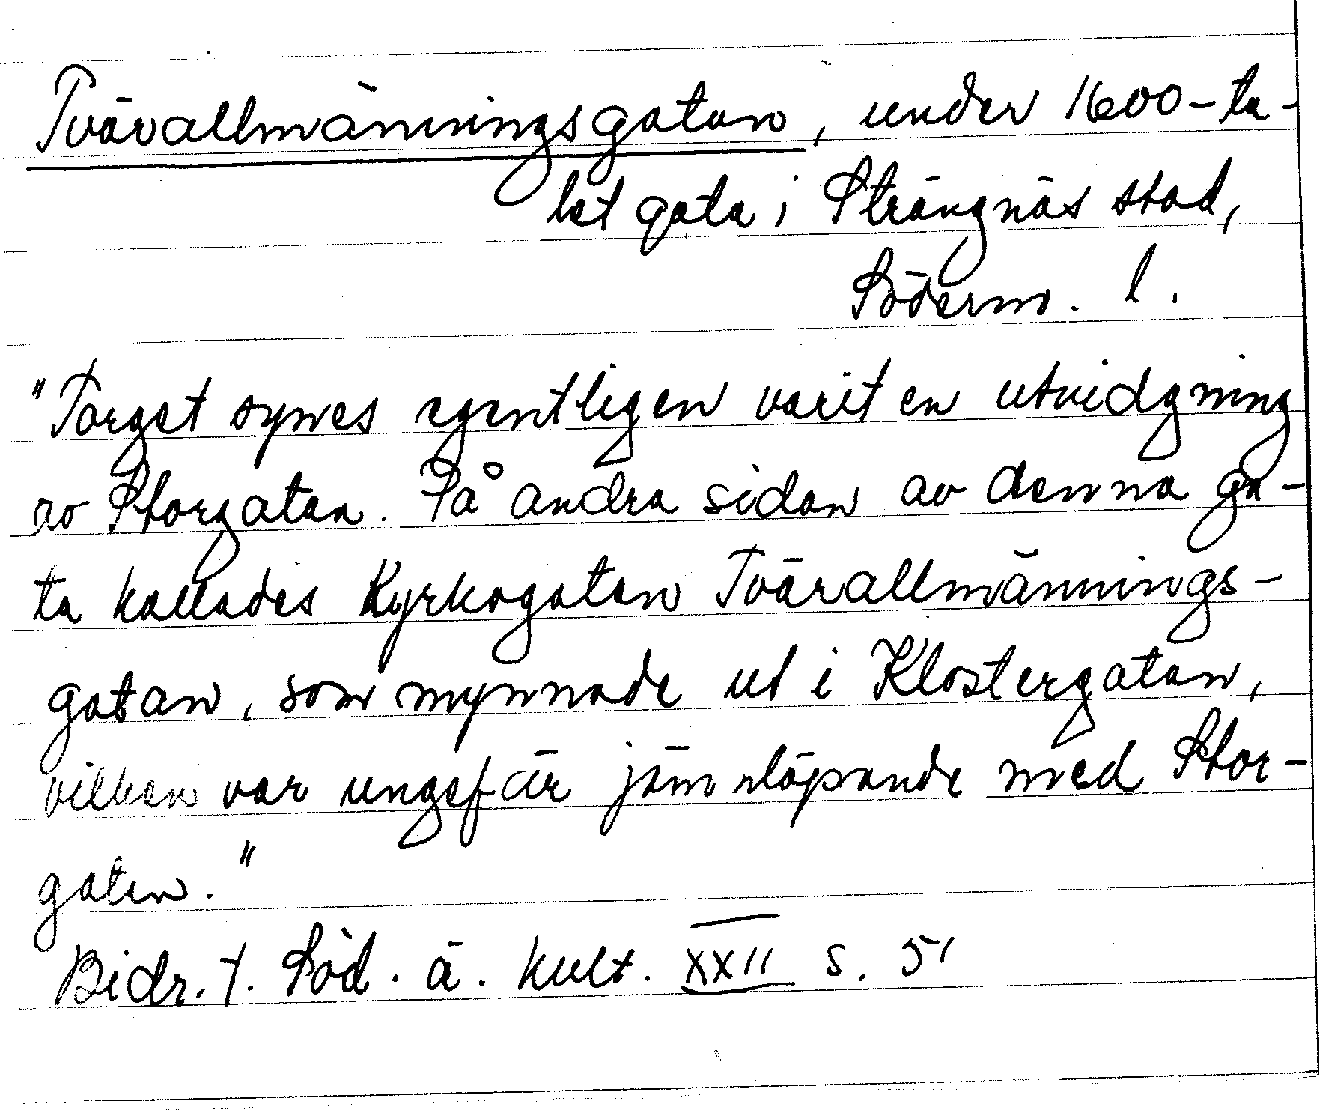 Tvärallmänningsgatan, under 1600-ta-
let gata i Strängnäs stad,
Söderm. l.
"Torget synes egentligen varit en utvidgning
av Storgatan. På andra sidan av denna ga-
ta kallades Kyrkogatan Tvärallmännings-
gatan, som mynnade ut i Klostergatan,
vilken var ungefär jämnlöpande med Stor-
gatan."
Bidr. t. Söd. ä. kult. XXII s. 51